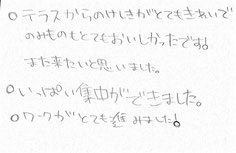 ○テラスからのけしきがとてもきれいで
のみものもとてもおいしかったです!
また来たいと思いました。
○いっぱい集中ができました。
○ワークがとても進みました!